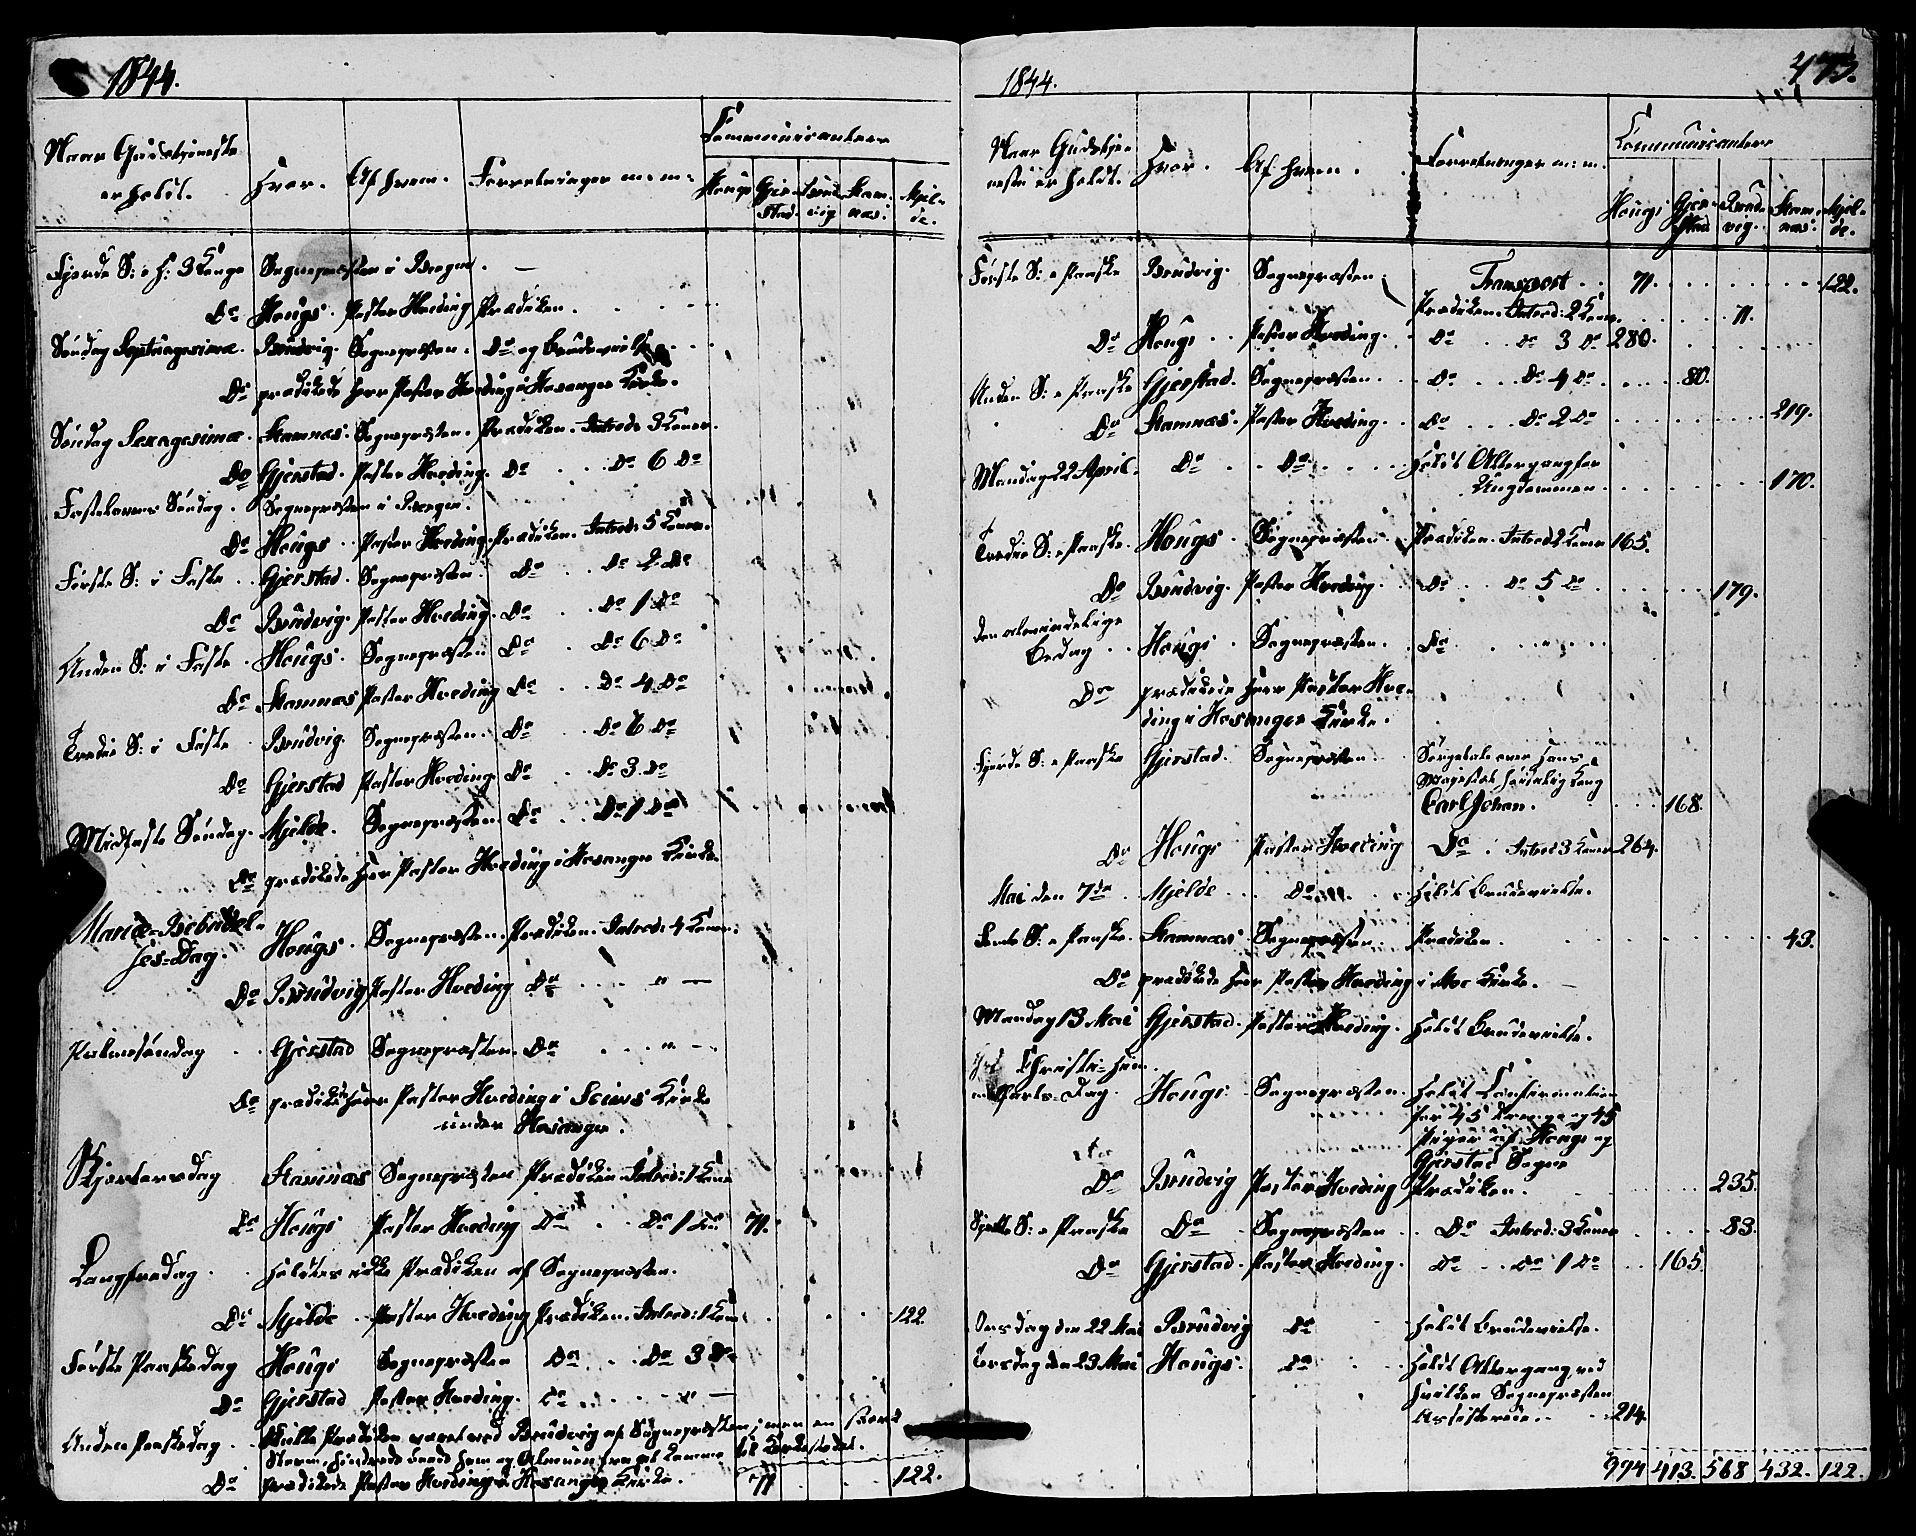 1844.
Naar Gudstjeneste er holdt. Hvor. Af hvem. Forretninger m: m: Communicantere
Hougs Gjerstad. Brudvig Stamnæs. Mjelde.
Fjerde S: e h: 3 Konge Sognepræsten i Bergen.
Do Hougs. Pastor Hveding Prædiken.
Søndag Septuagesima. Brudvig. Sognepræsten. Do og Brudevielse
Do prædikede Herr Pastor Hveding i Hosanger Kirke.
Søndag Sexagesima. Stamnæs. Sognepræsten. Prædiken. Introd: 3 Koner.
Do Gjerstad. Pastor Hveding. Do Do 6 Do
Fastelavns Søndag. Sognepræsten i Bergen.
Do Hougs Pastor Hveding Prædiken. Introd: 5 Koner.
Første S: i Faste Gjerstad. Sognepræsten. Do Do 2 Do
Do Brudvig. Pastor Hveding. Do Do 1 Do
Anden S: i Faste Hougs. Sognepræsten Do Do 6 Do
Do Stamnæs Pastor Hveding Do Do 4 Do
Tredie S: i Faste Brudvig. Sognepræsten. Do Do 6 Do
Do Gjerstad Pastor Hveding Do Do 3 Do
Midfaste Søndag. Mjelde. Sognepræsten. Do Do 1 Do
Do prædikede Herr Pastor Hveding i Hosanger Kirke
Mariæ-Bebudel-
ses-Dag. Hougs. Sognepræsten. Prædiken. Introd: 4 Koner.
Do Brudvig Pastor Hveding Do
Palmesøndag Gjerstad Sognepræsten. Do
Do prædikede Herr Pastor Hveding i Seims Kirke
under Hosanger.
Skjertorsdag Stamnæs Sognepræsten Prædiken Introd: 1 Kone
Do Hougs Pastor Hveding Do Do 1 Do 71.
Langfredag. Holdtes ikke Prædiken af Sognepræsten.
Do Mjelde Pastor Hveding Prædiken. Introd: 1 Kone 122
Første Paaskedag Hougs Sognepræsten Do Do 3 Do
Do Gjerstad Pastor Hveding. Do
Anden Paaskedag. Skulle Prædiken været ved Brudvig af Sognepræsten, men en stærk
Storm hindrede baade ham og Almuen fra at komme til Kirkestedet.
Do prædikede Pastor Hveding i Hosanger Kirke. 71 122.
1844. 473.
Naar Gudstje-
nesten er holdt. Hvor. Af hvem. Forretninger m: m. Communicantere
Hougs Gjer-stad Brud-vig. Stam-næs. Mjel-de.
Første S: e Paaske Brudvig. Sognepræsten Transport 71. 122.
Prædiken. Introd: 2 Koner. 11.
Do Hougs Pastor Hveding. Do Do 3 Do 280.
Anden S: e Paaske Gjerstad. Sognepræsten. Do Do 4 Do 80.
Do Stamnæs. Pastor Hveding. Do Do 2 Do 219.
Mandag 22 April. Do Do Holdt Altergang for
Ungdommen. 170.
Tredie S: e Paaske. Hougs. Sognepræsten. Prædiken. Introd 2 Koner 165.
Do Brudvig. Pastor Hveding. Do Do 5 Do 179.
Den almindelige
Bedag Hougs Sognepræsten. Do
Do prædikede Herr Pastor Hve-
ding i Hosanger Kirke.
Fjerde S: e Paaske Gjerstad. Sognepræsten Sørgetale over Hans
Majestæt høisalig Kong
Carl Johan. 168.
Do Hougs Pastor Hveding Do Introd 3 Koner 264.
Mai den 7de Mjelde Do Holdt Brudevielse.
Femte S: e Paaske. Stamnæs Sognepræsten. Prædiken. 43.
Do prædikede Herr Pastor Hveding i Moe Kirke.
Mandag 13 Mai Gjerstad. Pastor Hveding. Holdt Brudevielse.
Christi-Him-
melfarts-Dag. Hougs Sognepræsten. Holdt Confirmation
for 45 Drenge og 45
Piger af Hougs og
Gjerstad Sogne
Do Brudvig Pastor Hveding Prædiken. 235.
Sjette S: e Paaske Do Sognepræsten Do Introd: 3 Koner 83.
Do Gjerstad. Pastor Hveding. Do Do 1 Do 165.
Onsdag den 22 Mai Brudvig Do Holdt Brudevielse.
Torsdag den 23 Mai Hougs. Do Holdt Altergang, ved
hvilken Sognepræsten
Assisterede. 214.
994 413. 568 432. 122.